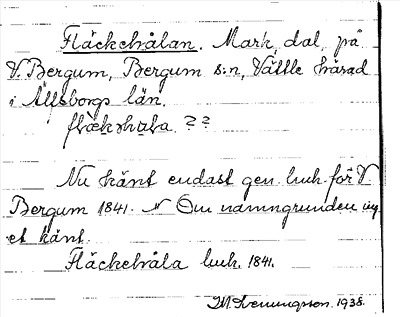 Fläckehålan. Mark, dal, på
V. Bergum, Bergum s:n, Vättle härad
i Älfsborgs län.
? ?
Nu känt endast gen. huh. för V
Bergum 1841. Om namngrunden ing
et känt.
Fläckehåla huh. 1841.
1938.